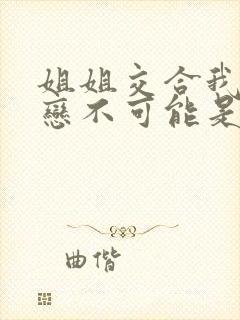 姐姐交合我
戀不可能是
曲偕